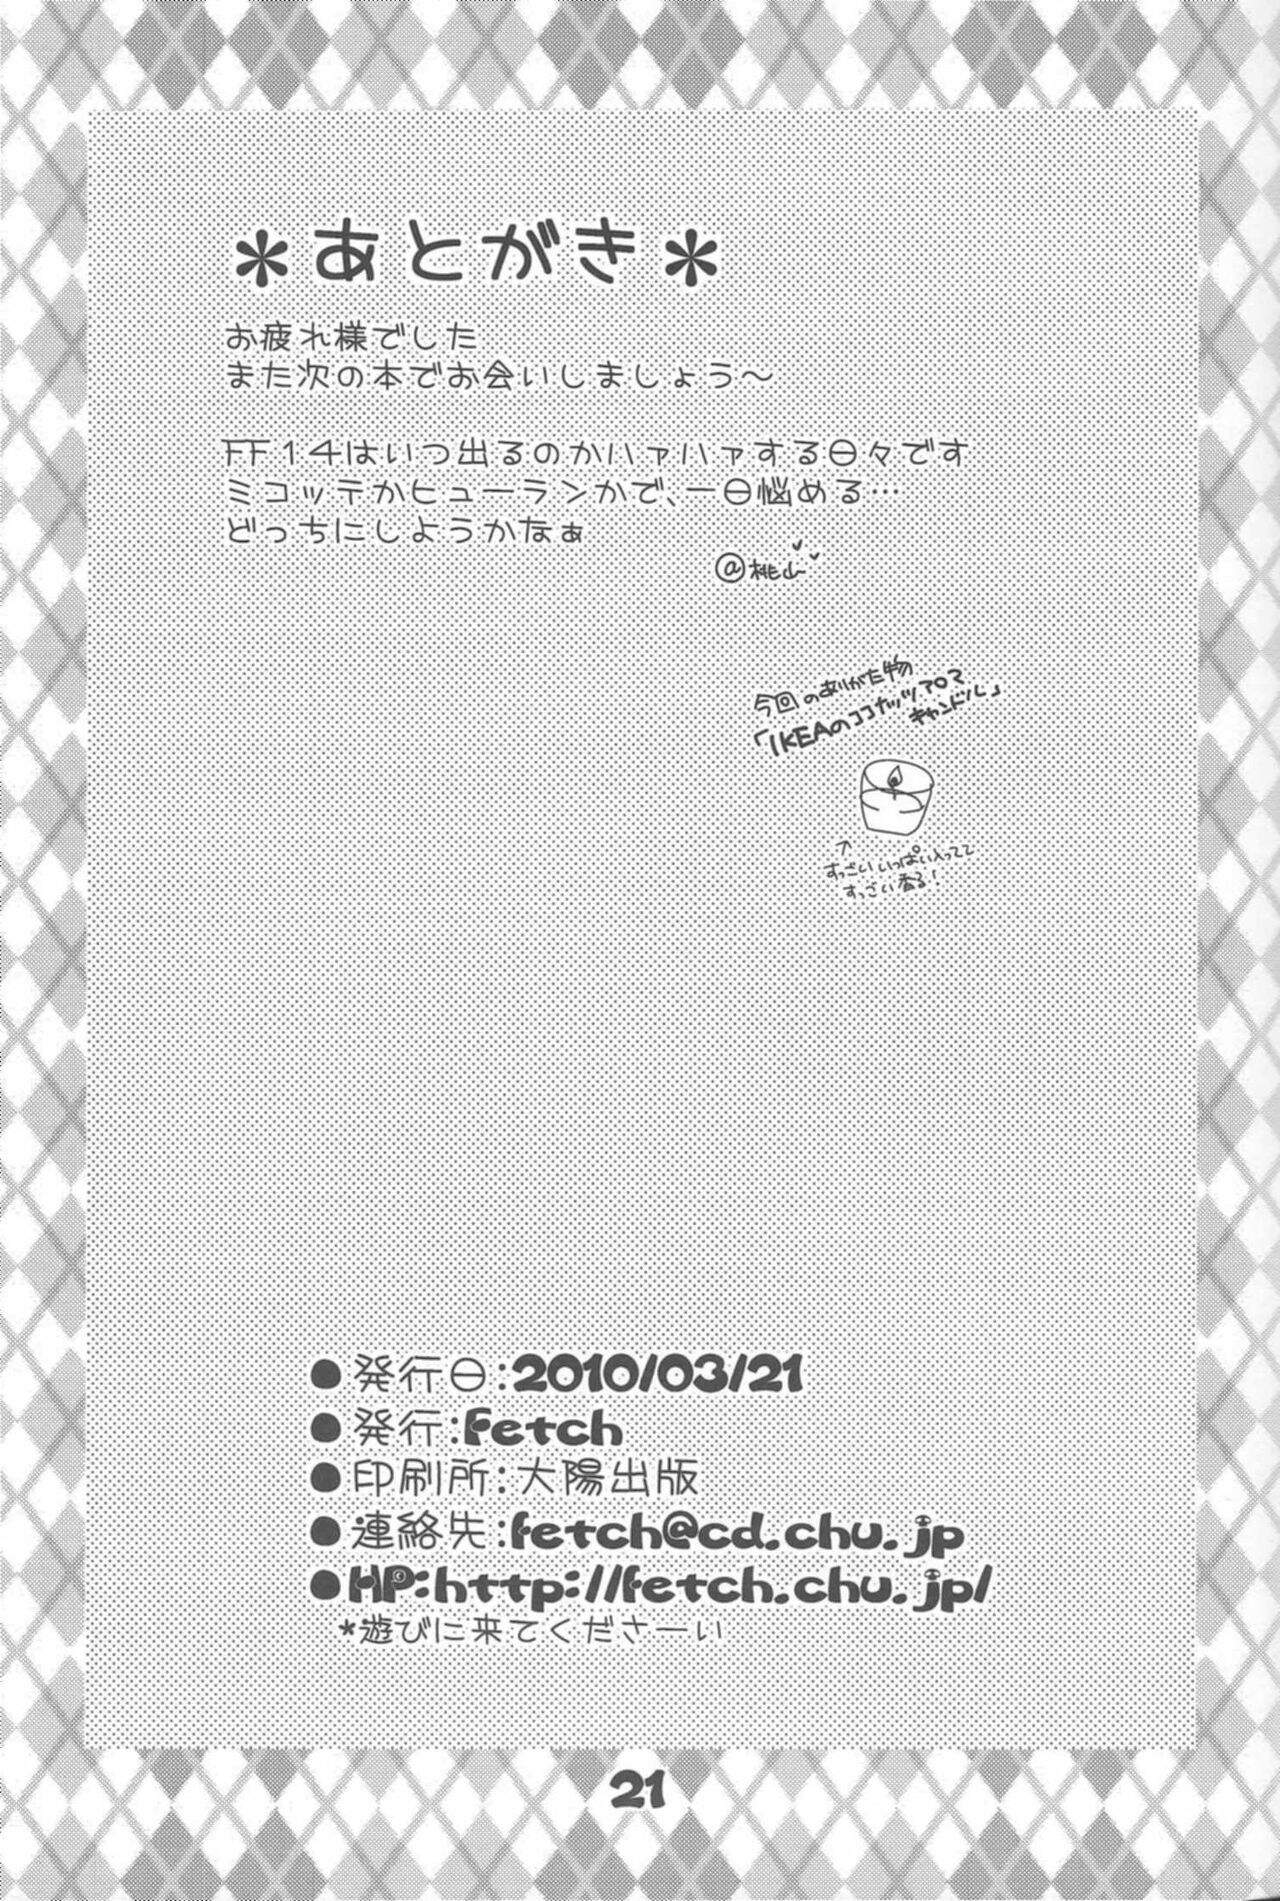 ＊あとがき＊
お疲れ様でした
また次の本でお会いしましょう～
FF14はいつ出るのかハァハァする日々です
ミコッテかヒューランかで、一日悩める…
どっちにしようかなぁ
@桃山
今回のありがた物
「IKEAのココナッツアロマ
キャンドル」
↑
すっごいいっぱい入ってて
すっごい香る！
●発行日:2010/03/21
●発行:Fetch
●印刷所:大陽出版
●連絡先:fetch@cd.chu.jp
●HP:http://fetch.chu.jp/
*遊びに来てくださーい
21